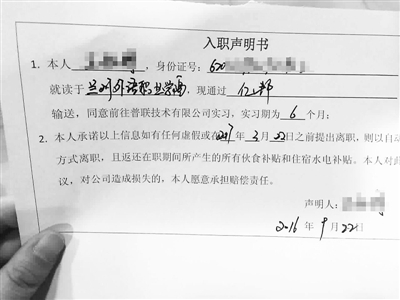 入职声明书
1. 本人 ，身份证号：620
就读于 兰州外语职业学院，现通过 仁邦
输送，同意前往普联技术有限公司实习，实习期为 6 个月；
2. 本人承诺以上信息如有任何虚假或在2017年3月22日之前提出离职，则以自动
方式离职，且返还在职期间所产生的所有伙食补贴和住宿水电补贴。本人对此
议，对公司造成损失的，本人愿意承担赔偿责任。
声明人：
2016 年 9 月 22日